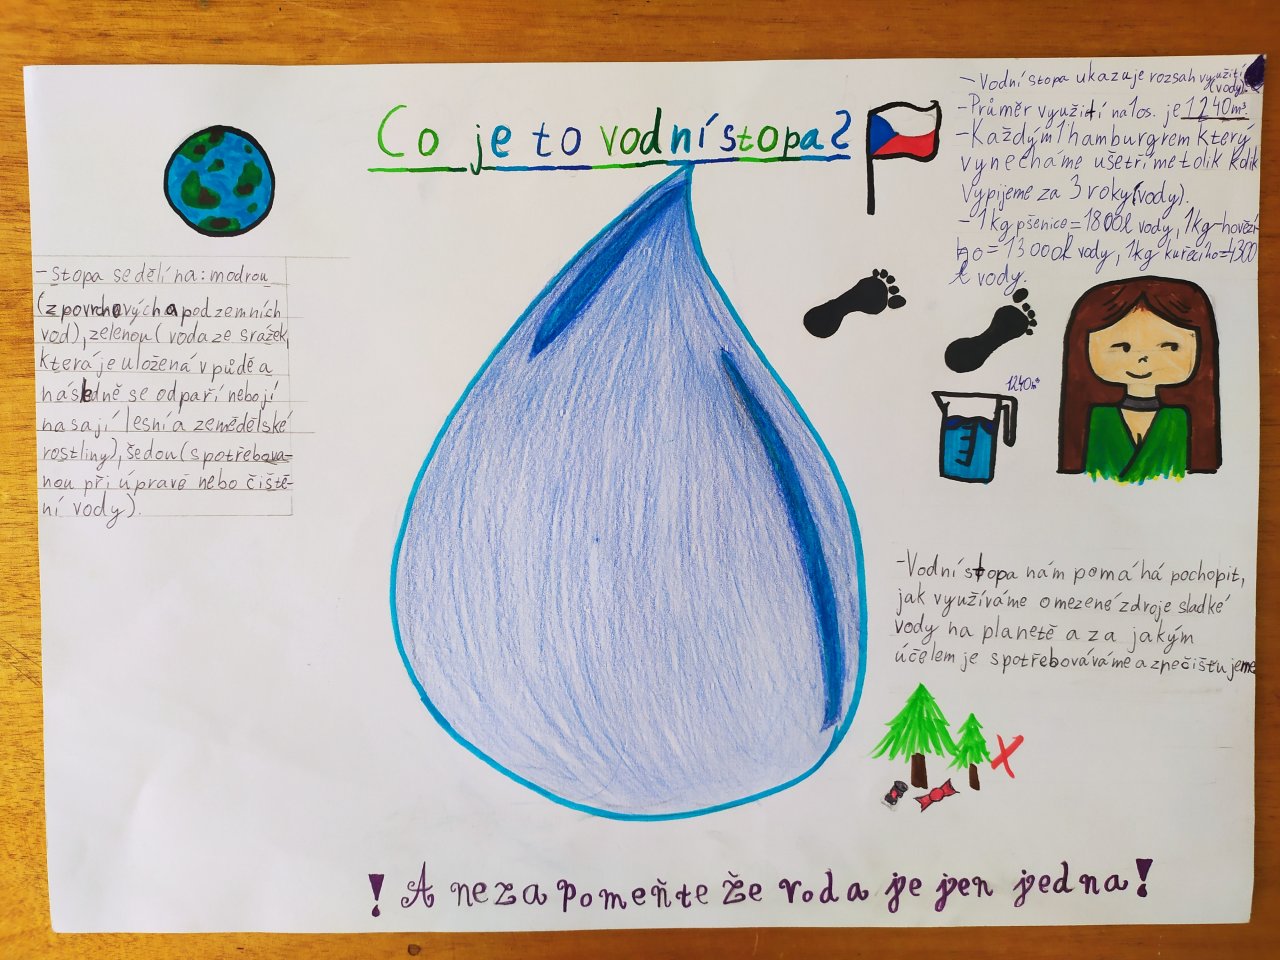 Co je to vodní stopa?
- Stopa se dělí na: modrou
(z povrchových a podzemních
vod), zelenou (voda ze srážek,
která je uložená v půdě a
následně se odpaří nebo jí
nasají lesní a zemědělské
rostliny), šedou (spotřebova-
nou při úpravě nebo čiště-
ní vody).
- Vodní stopa ukazuje rozsah využití
(vody).
- Průměr využití na 1os. je 1240m³.
- Každým 1 hamburgrem který
vynecháme ušetříme tolik kolik
vypijeme za 3 roky (vody).
- 1kg pšenice = 1800l vody, 1kg-hovězí
ho = 13000l vody, 1kg kuřecího = 4300
l vody.
1240m³
- Vodní stopa nám pomáhá pochopit,
jak využíváme omezené zdroje sladké
vody na planetě a za jakým
účelem je spotřebováváme a znečišťujeme
! A nezapomeňte že voda je jen jedna!